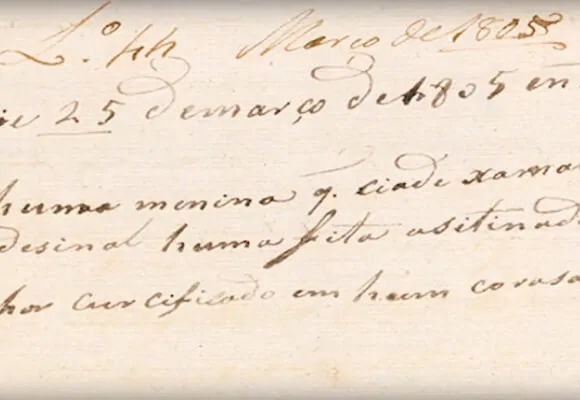 L.º 44 Março de 1805
e 25 de março de 1805 en
huma menina q. ciade xama
desinal huma fita asitinad
hor curcifisado em hum coras